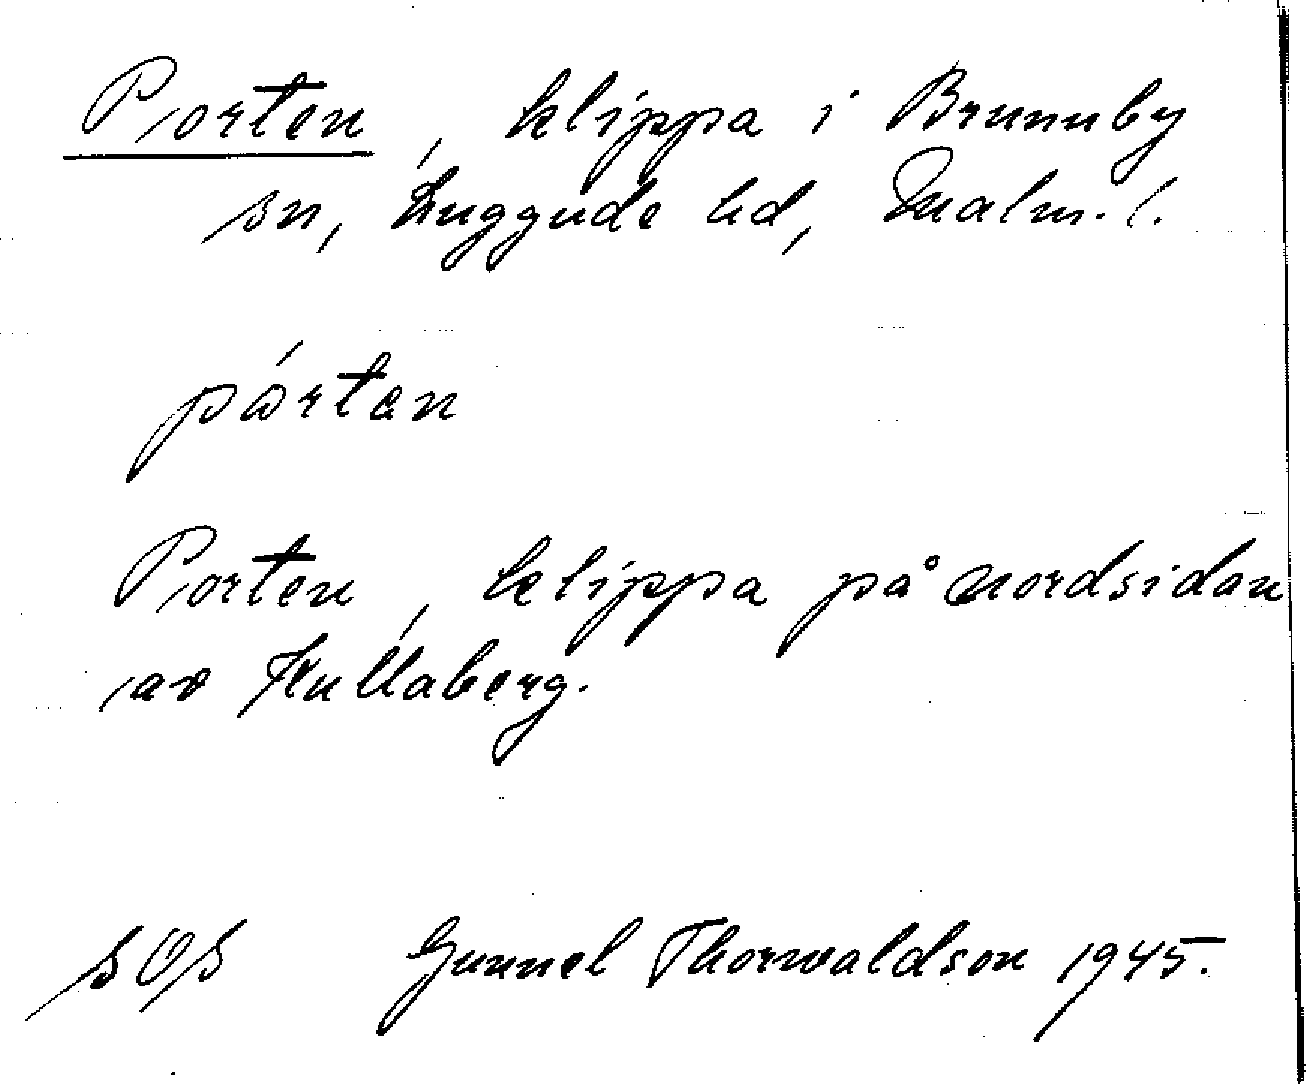 Porten, klippa i Brunnby
sn, Luggude hd, Malm. l.
pórtan
Porten, klippa på nordsidan
av Kullaberg.
SOS Gunnel Thorwaldson 1945.